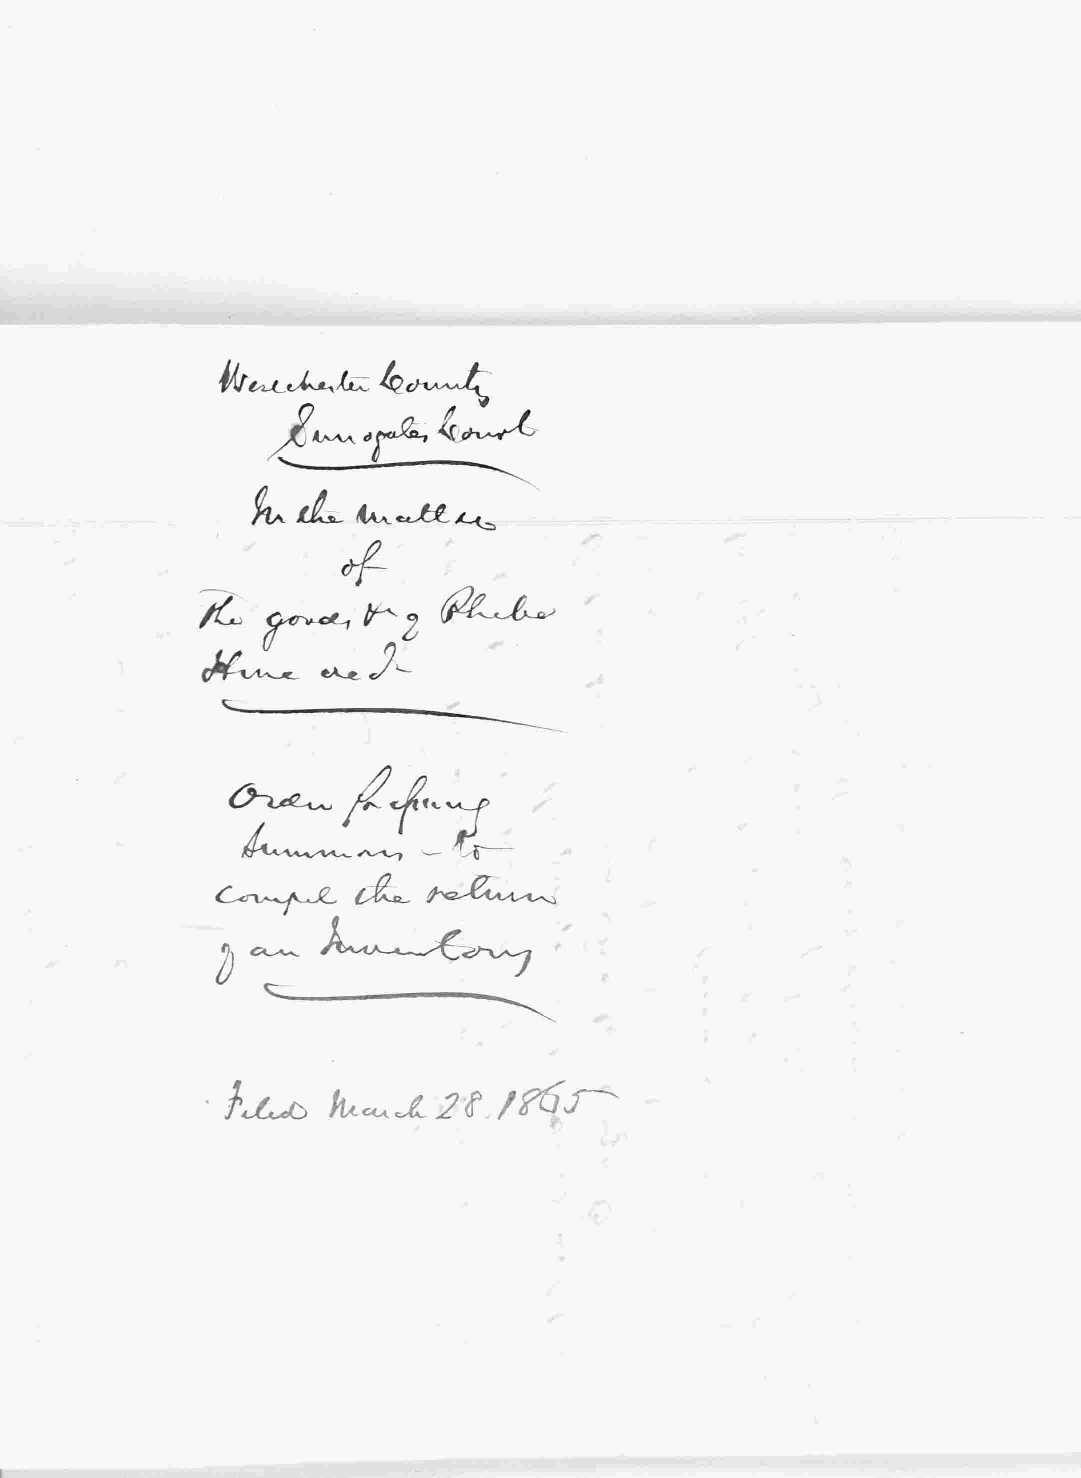 Westchester County
Surrogates Court
In the matter
of
The goods &c of Phebe
Hine decd
Order for issuing
Summons - to
compel the return
of an Inventory
Filed March 28. 1865